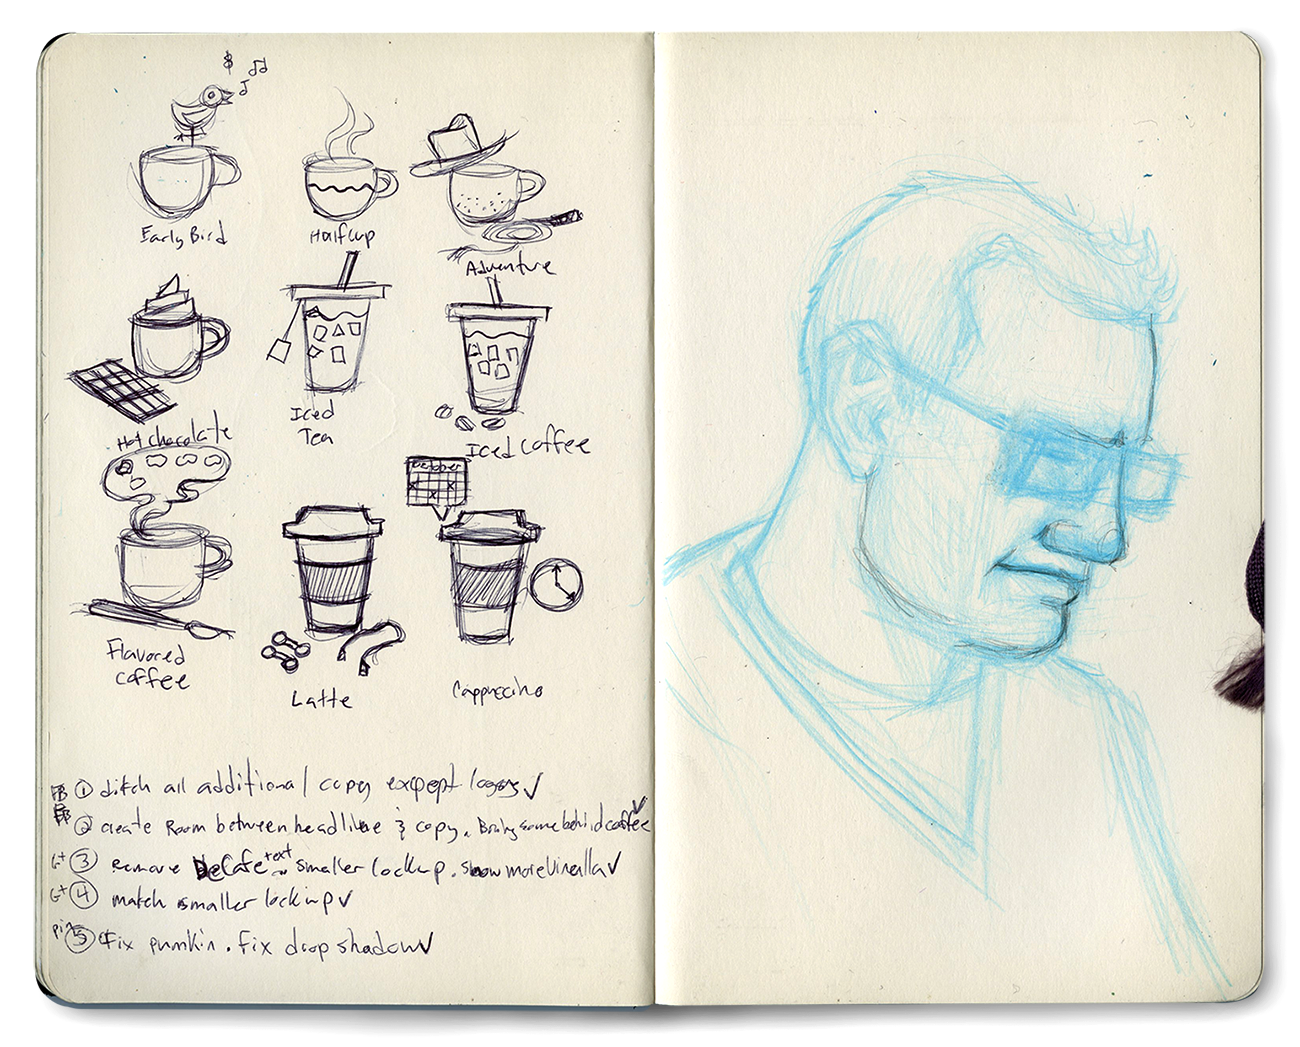 Early Bird
Halfcup
Adventure
Hot chocolate
Iced
Tea
Iced Coffee
October
Flavored
coffee
Latte
Cappuccino
FB ① ditch all additional copy expept logos ✓
② create Room between headline & copy. Bring some behind coffee ✓
G+ ③ Remove DeCafe text smaller lockup. show more Vinealla ✓
G+ ④ match smaller lockup ✓
pin ⑤ Fix pumkin. Fix drop shadow ✓